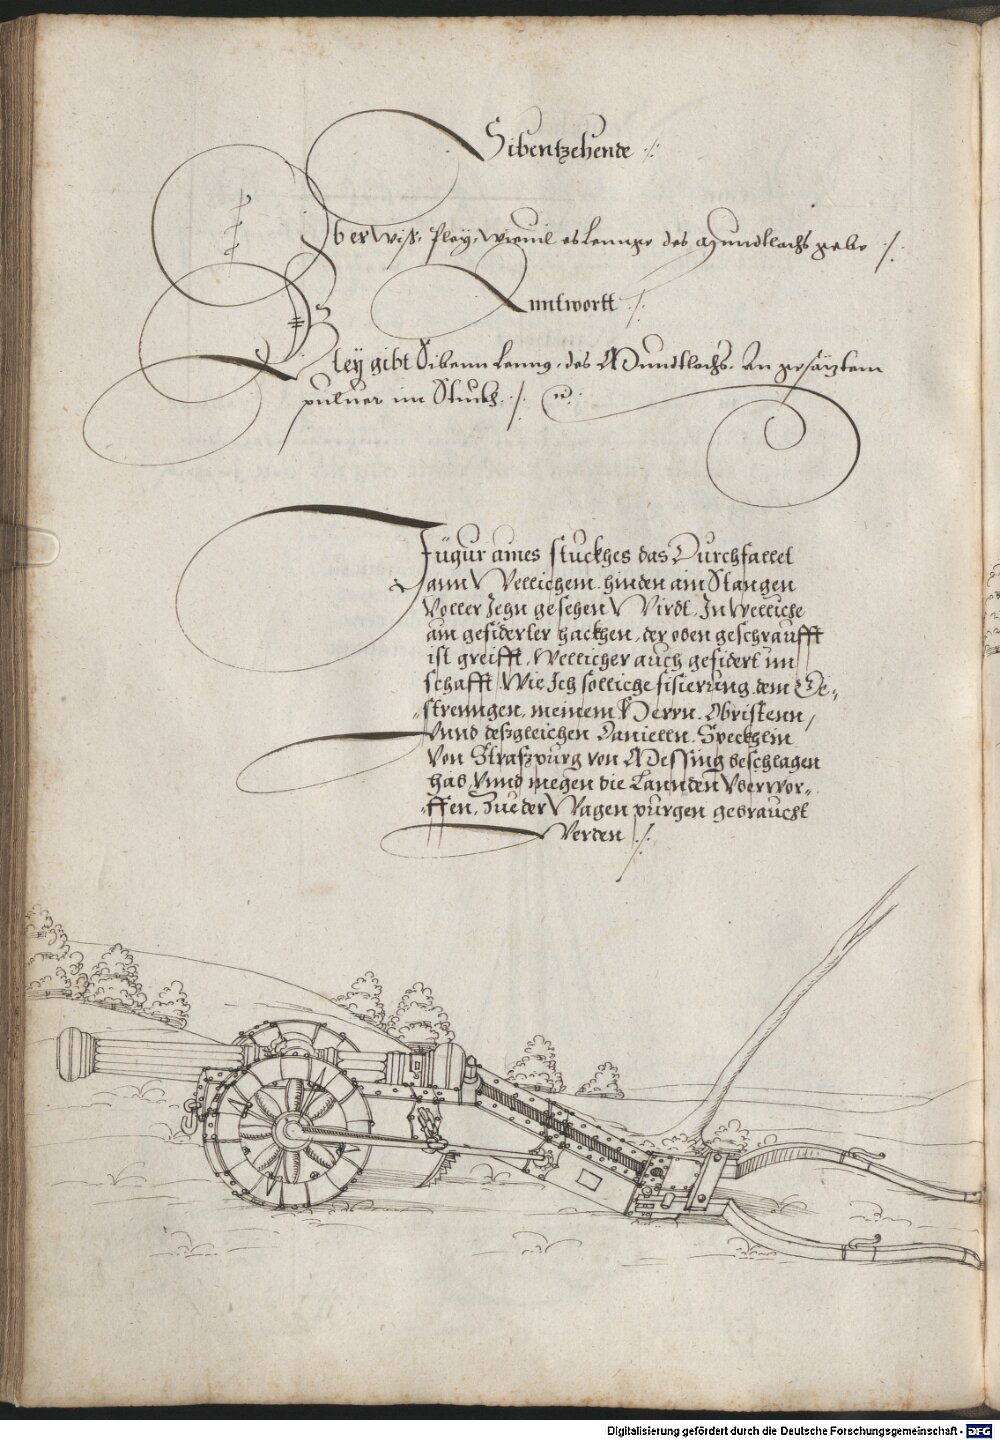 Sibentzehende ./.
Uberwiß. Pley, Wieuil es Lennge des Mundtlochs gebe ./.
Anntwortt ./.
Bley gibt Sibenn Leng, des Mundtlochs. An
puluer im Stuckh ./.
Figur aines stuckhes das Durchfallet
ann Wellichem. hinden ain Stangen
Voller Zehn gesehen Wirdt, In welliche
ain gefiderter hackhen, der oben geschraufft
ist greifft, Wellicher auch gefidert im
schafft. Wie Ich solliche fisierung dem Ge„
„strenngen, meinem Herrn. Obristenn,
Vnnd deßgleichen Danielln. Speckhlin
von Straßpurg von Messing beschlagen
hab, Vnnd megen die Lannden Vberwor„
„ffen, Zue der Wagen purgen gebraucht
Werden ./.
Digitalisierung gefördert durch die Deutsche Forschungsgemeinschaft - DFG